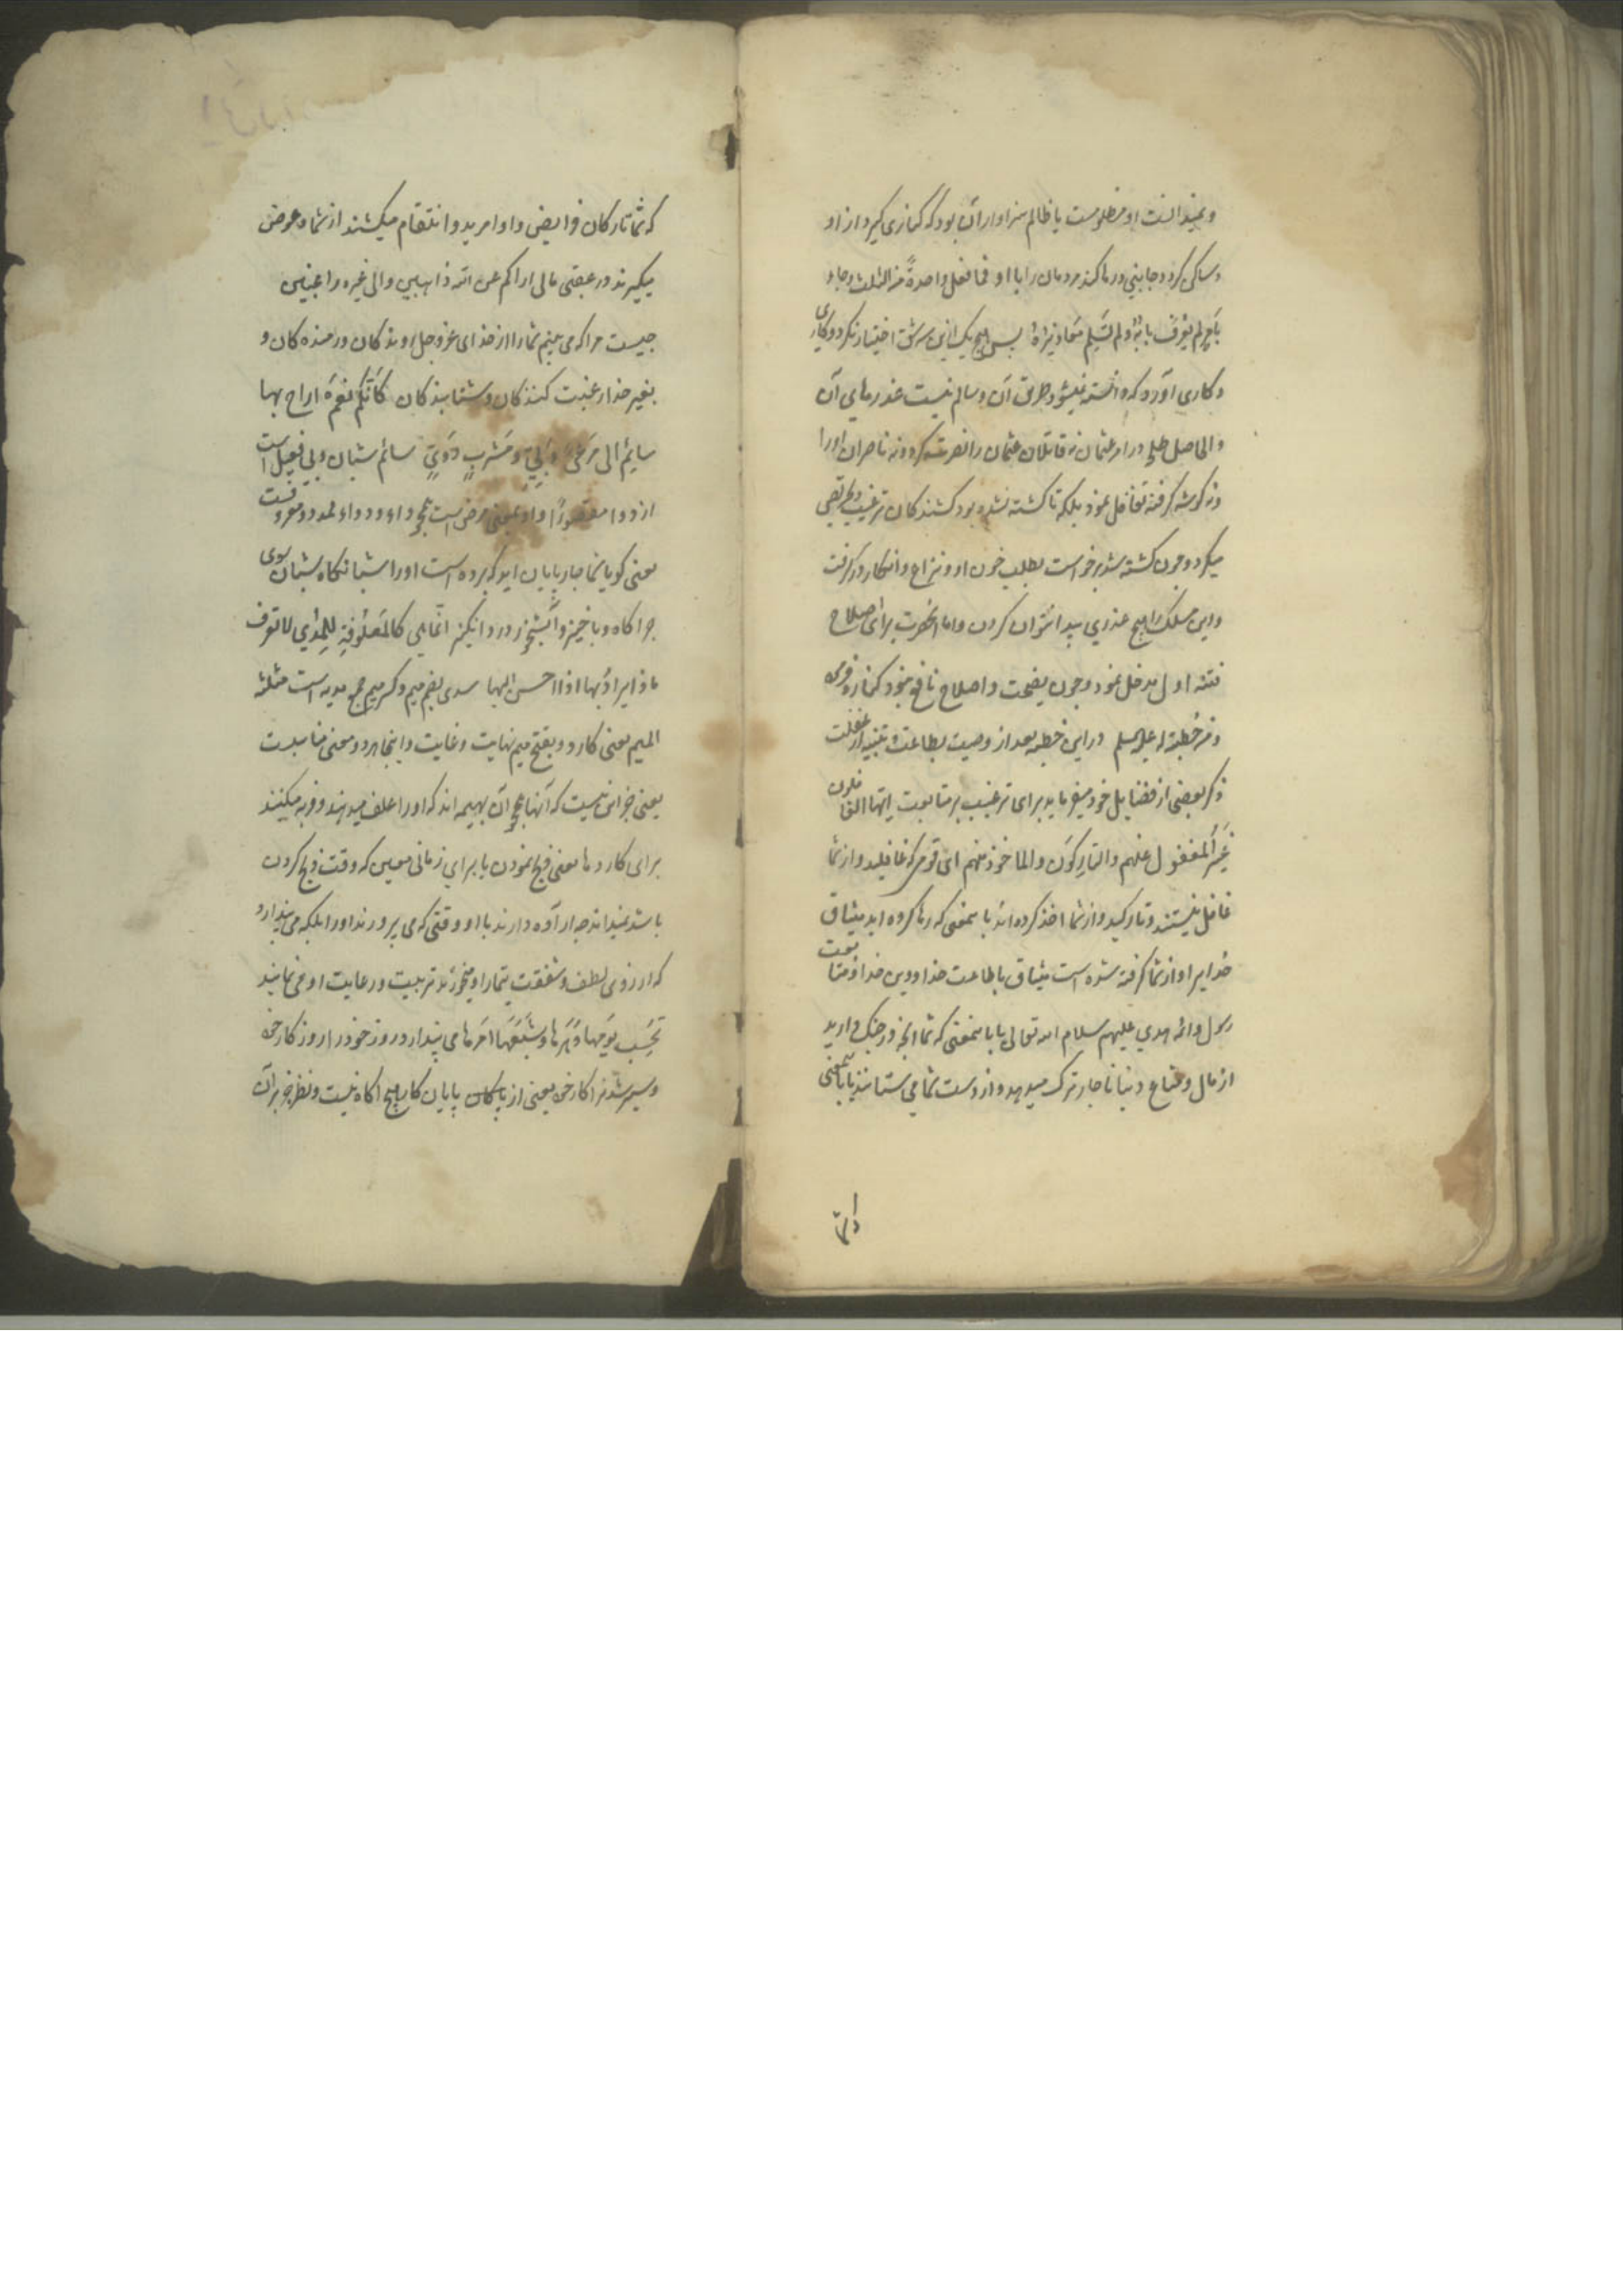 و نمیدانست او مظلومست یا ظالم سزاوار آن بود که کناری گیرد از او
و ساکن گردد جانبی و رها کند مردمان را با او فما فعل واحدة من الثلث و جاء
بامر لم یعرف بابه و لم تسلم معاذیره پس هیچ یک ازین سه شق اختیار نکرد و کاری
و کاری آورد که دانسته نمیشود طریق آن و سالم نیست عذرهای آن
و الحاصل طلحه در امر عثمان نه قاتلان عثمان را نصرت کرد و نه ناصران اورا
و نه گوشه گرفته تغافل نمود بلکه تا کشته نشده بود کشندگان ترغیب و تحریص
میکرد و چون کشته شد برخواست بطلب خون او و نزاع و انکار در گرفت
و این مسلک را هیچ عذری پیدا نتوان کردن و اما آنحضرت برای اصلاح
فتنه اول مدخل نمود و چون نصیحت و اصلاح نافع نبود کناره فرمود
و من خطبة له علیه السلم در این خطبه بعد از وصیت بطاعت و تنبیه از غفلت
ذکر بعضی از فضایل خود میفرماید برای ترغیب بر متابعت ایها الغافلون
غیر المغفول عنهم و التارکون و الماخوذ منهم ای قومی که غافلید و از شما
غافل نیستند و تارکید و از شما اخذ کرده اند بآنمعنی که رها کرده اید میثاق
خدایرا و از شما گرفته شده است میثاق باطاعت خدا و دین خدا و متابعت
رسول و ائمه هدی علیهم سلام الله تعالی یا بآنمعنی که شما آنچه در چنگ دارید
از مال و متاع دنیا ناچار ترک میدهید و از دست شما می ستانند یا بآنمعنی
که شما تارکان فرایض و اوامرید و انتقام میکشند از شما و عوض
میگیرند در عقبی مالی اراکم عن الله ذاهبین و الی غیره راغبین
چیست مرا که می بینم شما را از خدای عز و جل روندگان و رمنده کان و
بغیر خدا رغبت کنندگان و شتابندگان کانکم نعم اراح بها
سائم الی مرعی وبی و مشرب دوی سائم شبان وبی فعیل است
از دوا مقصورا و او بمعنی مرض است
یعنی گویا شما چارپایان اید که برده است اورا شبانگاه شبان بسوی
چراگاه وباخیز و آبشخور درد انگیز انما هی کالمعلوفة للمدی لا تعرف
ماذا یراد بها اذا احسن الیها مدی بضم میم و کسر میم جمع مدیه است مثلثة
المیم بمعنی کارد و بفتح میم نهایت و غایت و اینجا هر دو معنی مناسبت
یعنی جز این نیست که آنها همچو آن بهیمه اند که اورا علف میدهند و فربه میکنند
برای کاردها یعنی ذبح نمودن یا برای زمانی معین که وقت ذبح کردن
باشد نمیداند چه اراده دارند با او وقتی که می پرورند اورا بلکه می پندارد
که از روی لطف و شفقت تیمار او میخورند و تربیت و رعایت او می نمایند
تحسب یومها دهرها و شبعها امرها می پندارد روز خود را روزگار خود
و سیر شدن را کار خود یعنی از پایان کار هیچ آگاه نیست و نظر جز بر آن